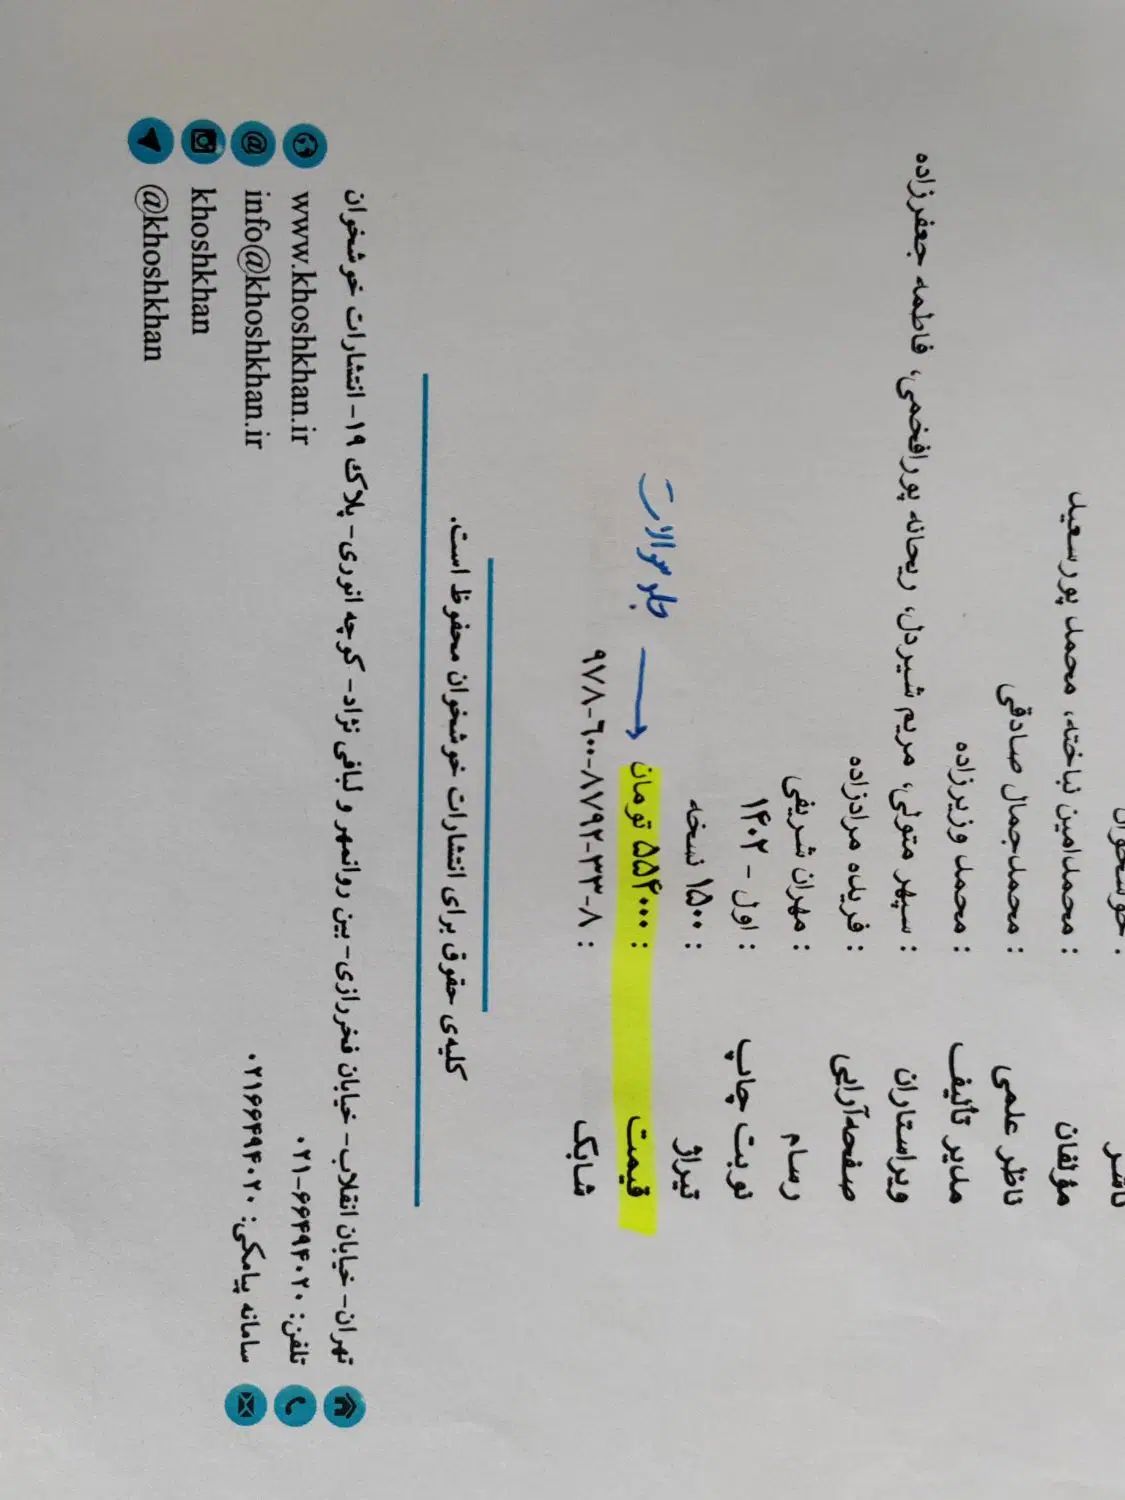 مؤلفان : محمدامین نباخته، محمد پورسعید
ناظر علمی : محمدجمال صادقی
مدیر تألیف : محمد وزیرزاده
ویراستاران : سپهر متولی، مریم شیردل، ریحانه پورافخمی، فاطمه جعفرزاده
صفحه‌آرایی : فریده مرادزاده
رسام : مهران شریفی
نوبت چاپ : اول - ۱۴۰۲
تیراژ : ۱۵۰۰ نسخه
قیمت : ۵۵۴۰۰۰ تومان
جلد سوالات
شابک : ۹۷۸-۶۰۰-۸۷۹۲-۳۳-۸
کلیه‌ی حقوق برای انتشارات خوشخوان محفوظ است.
تهران- خیابان انقلاب- خیابان فخررازی- بین روانمهر و لبافی نژاد- کوچه انوری- پلاک ۱۹- انتشارات خوشخوان
تلفن: ۰۲۱-۶۶۴۹۴۰۲۰
www.khoshkhan.ir
سامانه پیامکی: ۰۲۱۶۶۴۹۴۰۲۰
info@khoshkhan.ir
khoshkhan
@khoshkhan